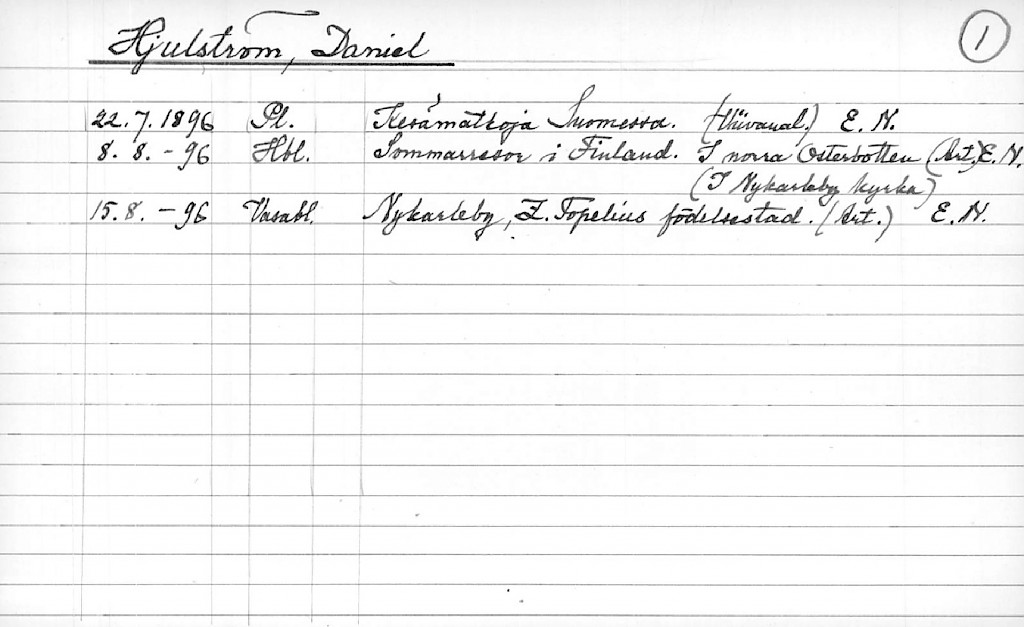 Hjulström, Daniel
1
22.7.1896 Pl. Kesämatkoja Suomessa. E. N.
8. 8. - 96 Hbl. Sommarresor i Finland. I norra Österbotten (Art.) E. N.
(I Nykarleby kyrka)
15. 8. - 96 Vasabl. Nykarleby, Z. Topelius födelsestad. (Art.) E. N.